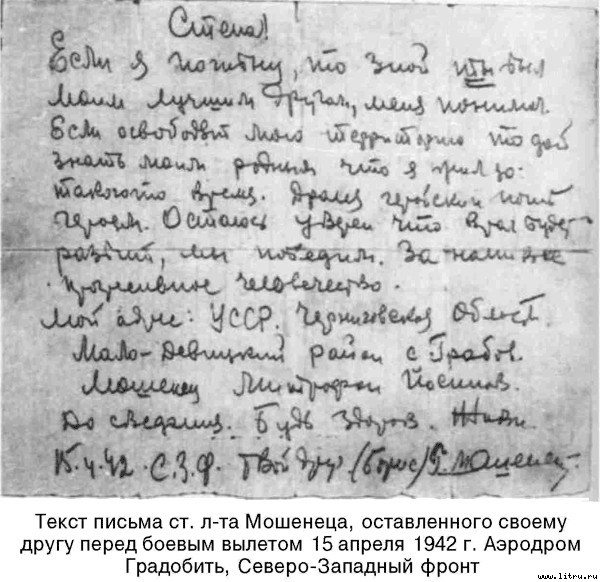 Степа!
Если я погибну, то знай ты был
моим лучшим другом, меня понимал.
Если освободят мою территорию то дай
знать моим родным что я жил до
такого то время. Дрался геройски погиб
героем. Остаюсь уверен что враг будет
разбит, мы победим. За нами все
прогрессивное человечество.
Мой адрес: УССР. Черниговская област.
Мало-Девицкий район с Грабов.
Мошенец Митрофан
До свидания. Будь здоров. Живи.
15.4.42 С.З.Ф. Твой друг (Борис) Мошенец
Текст письма ст. л-та Мошенеца, оставленного своему
другу перед боевым вылетом 15 апреля 1942 г. Аэродром
Градобить, Северо-Западный фронт
www.litru.ru